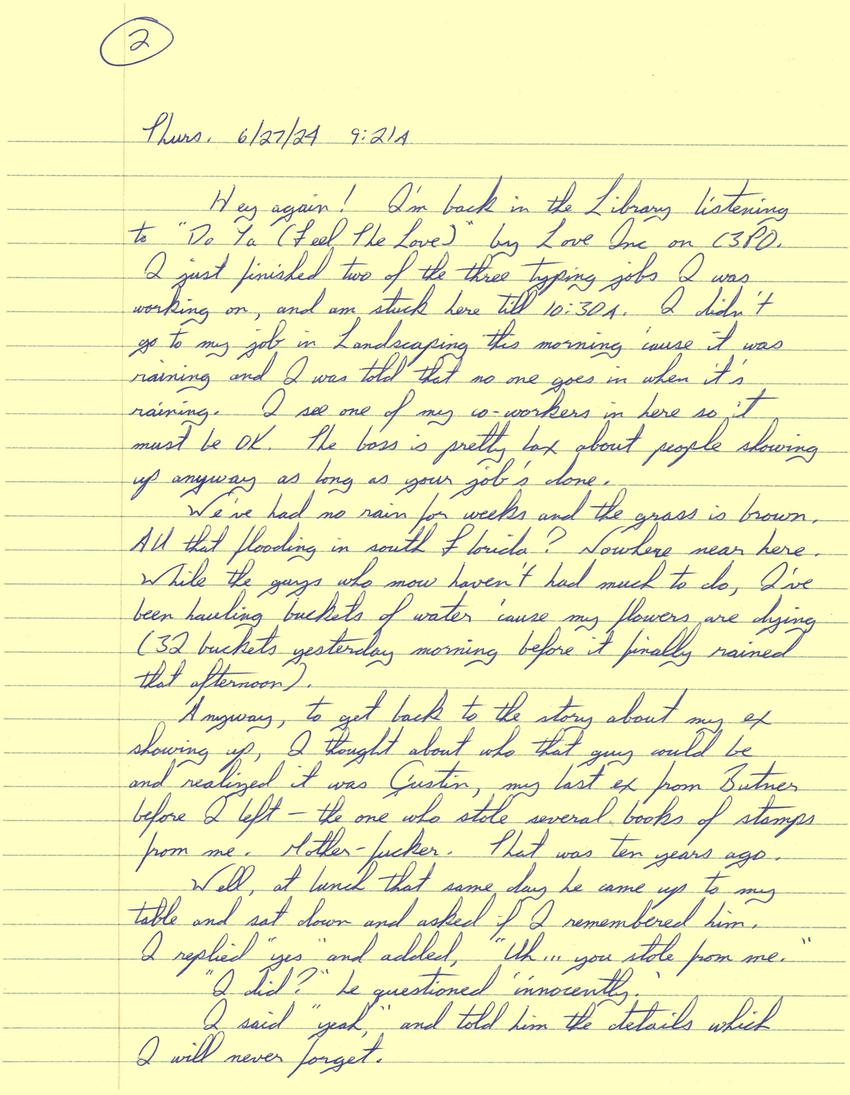 2
Thurs. 6/27/24 9:21A
Hey again! I'm back in the Library listening
to "Do Ya (Feel The Love)" by Love Inc on C3PO.
I just finished two of the three typing jobs I was
working on, and am stuck here till 10:30A. I didn't
go to my job in Landscaping this morning 'cause it was
raining and I was told that no one goes in when it's
raining. I see one of my co-workers in here so it
must be OK. The boss is pretty lax about people showing
up anyway as long as your job's done.
We've had no rain for weeks and the grass is brown.
All that flooding in south Florida? Nowhere near here.
While the guys who mow haven't had much to do, I've
been hauling buckets of water 'cause my flowers are dying
(32 buckets yesterday morning before it finally rained
that afternoon).
Anyway, to get back to the story about my ex
showing up, I thought about who that guy could be
and realized it was Custin, my last ex from Butner
before I left – the one who stole several books of stamps
from me. Mother-fucker. That was ten years ago.
Well, at lunch that same day he came up to my
table and sat down and asked if I remembered him.
I replied "yes" and added, "Uh... you stole from me."
"I did?" he questioned 'innocently.'
I said "yeah," and told him the details which
I will never forget.